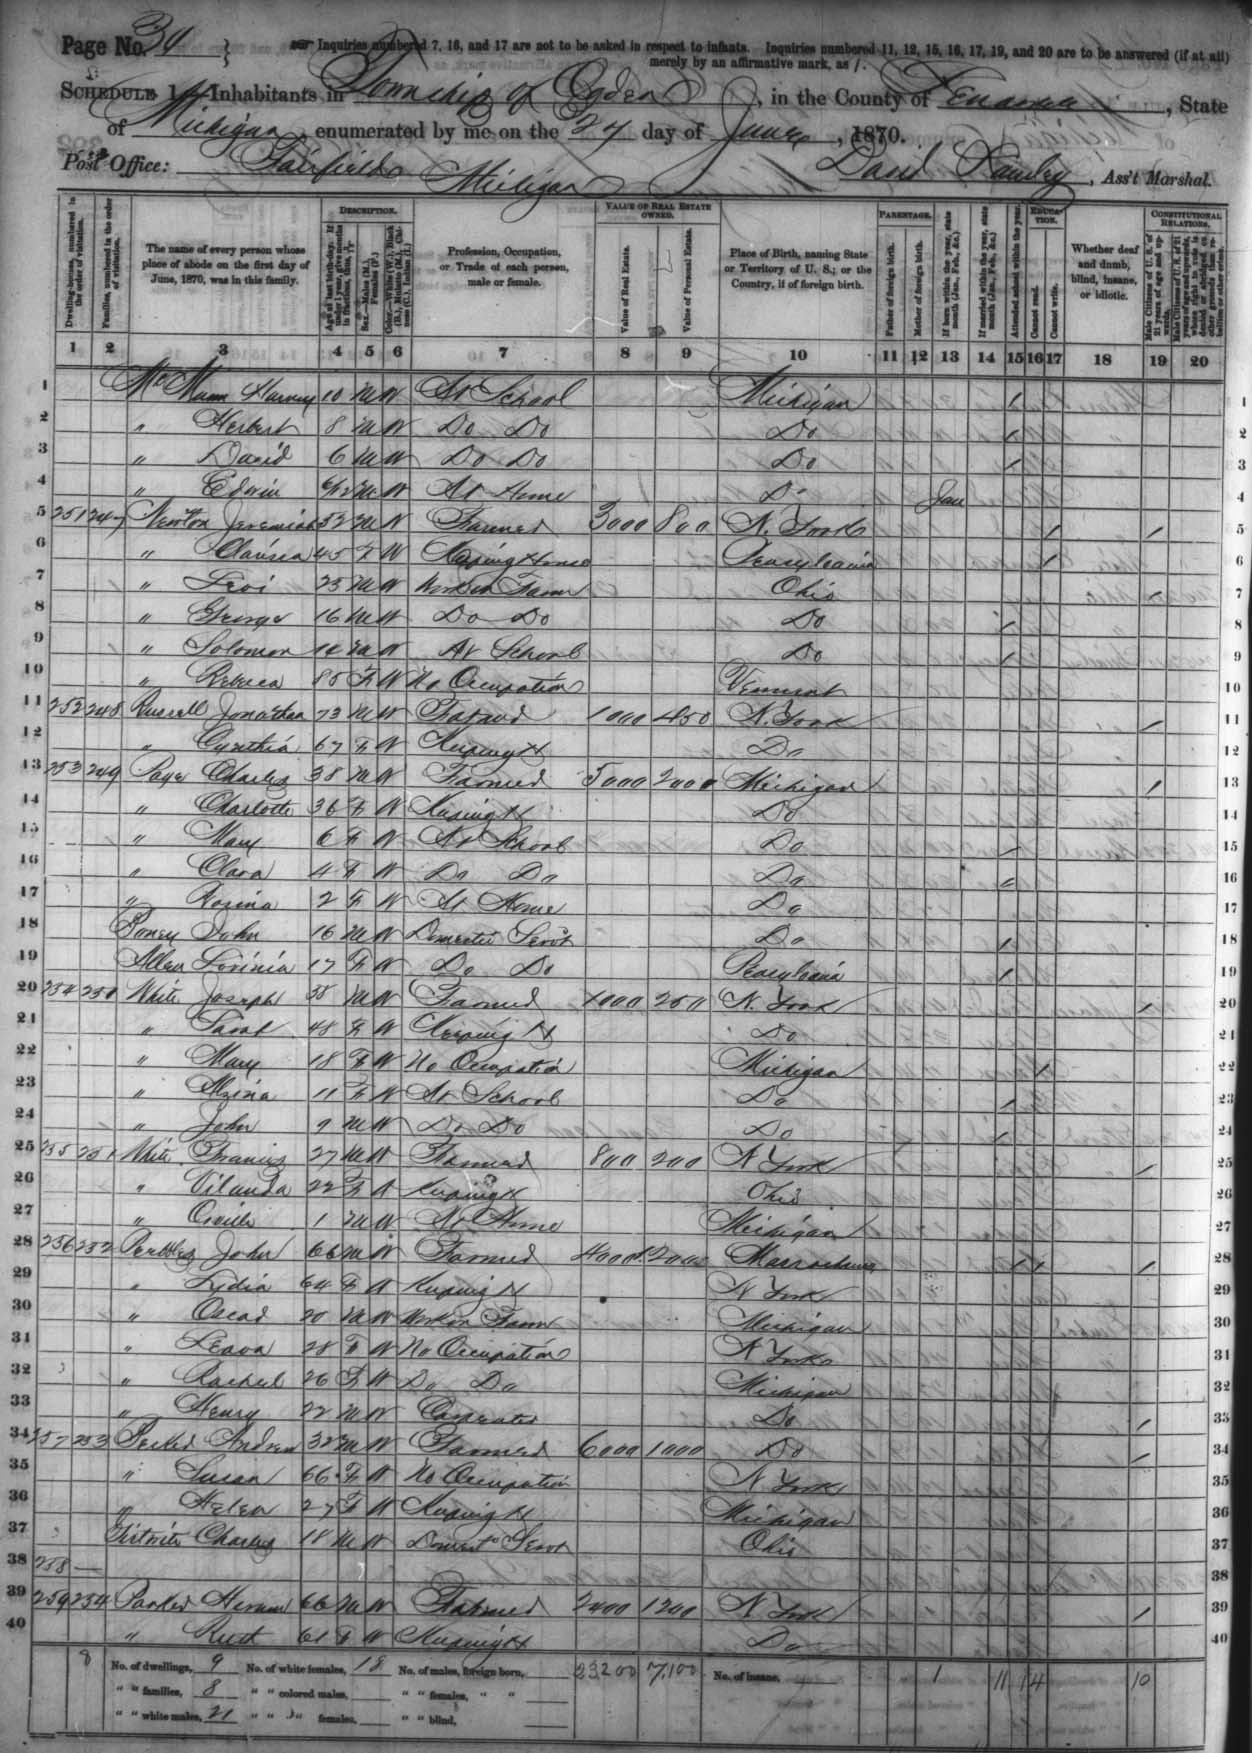 Page No. 34
Inquiries numbered 7, 16, and 17 are not to be asked in respect to infants. Inquiries numbered 11, 12, 15, 16, 17, 19, and 20 are to be answered (if at all) merely by an affirmative mark, as /.
SCHEDULE 1.—Inhabitants in Township of Ogden, in the County of Lenawee, State
of Michigan, enumerated by me on the 24 day of June, 1870.
Post Office: Fairfield Michigan David, Ass't Marshal.
DESCRIPTION. VALUE OF REAL ESTATE OWNED. PARENTAGE. EDUCATION. CONSTITUTIONAL RELATIONS.
Dwelling-houses, numbered in the order of visitation.
Families, numbered in the order of visitation.
The name of every person whose place of abode on the first day of June, 1870, was in this family.
Age at last birth-day. If under 1 year, give months in fractions, thus,
Sex.—Males (M.), Females (F.)
Color.—White (W.), Black (B.), Mulatto (M.), Chinese (C.), Indian (I.)
Profession, Occupation, or Trade of each person, male or female.
Value of Real Estate.
Value of Personal Estate.
Place of Birth, naming State or Territory of U. S.; or the Country, if of foreign birth.
Father of foreign birth.
Mother of foreign birth.
If born within the year, state month (Jan. Feb, &c.)
If married within the year, state month (Jan. Feb. &c.)
Attended school within the year.
Cannot read.
Cannot write.
Whether deaf and dumb, blind, insane, or idiotic.
Male Citizens of U. S. of 21 years of age and upwards.
1 2 3 4 5 6 7 8 9 10 11 12 13 14 15 16 17 18 19 20
1 Harvey 10 M W At School Michigan / 1
2 " Herbert 8 M W Do Do Do / 2
3 " David 6 M W Do Do Do / 3
4 " Edwin 6/12 M W At Home Do Jan 4
5 251 247 Newton Jeremiah 52 M W Farmer 3000 800 N. York / / 5
6 " 45 F W Keeping House Pensylvania / 6
7 " Levi 23 M W Work on Farm Ohio / 7
8 " George 16 M W Do Do Do / 8
9 " Solomon M W At School Do / 9
10 " Rebeca 85 F W No Occupation Vermont 10
11 252 248 Russell Jonathan 73 M W Farmer 1000 450 N. York / 11
12 " Cynthia 67 F W Keeping H Do 12
13 253 249 Page Charles 38 M W Farmer 5000 2000 Michigan / 13
14 " Charlotte 36 F W Keeping H Do 14
15 " Mary 6 F W At School Do / 15
16 " Clara 4 F W Do Do Do / 16
17 " Rosina 2 F W At Home Do 17
18 John 16 M W Domestic Servt Do / 18
19 Allen Lovinia 17 F W Do Do Pensylvania / 19
20 254 250 White Joseph 58 M W Farmer 1000 250 N. York / 20
21 " Sarah 48 F W Keeping H Do 21
22 " Mary 18 F W No Occupation Michigan / 22
23 " 11 F W At School Do / 23
24 " John 9 M W Do Do Do / 24
25 255 251 White Francis 27 M W Farmer 800 200 N York / 25
26 " Vilanda 22 F W Keeping H Ohio 26
27 " Orville 1 M W At Home Michigan 27
28 256 252 John 66 M W Farmer 4000 1200 / / / 28
29 " Lydia 64 F W Keeping H N York 29
30 " Oscar 20 M W Work on Farm Michigan 30
31 " 28 F W No Occupation N York 31
32 " Rachel 26 F W Do Do Michigan 32
33 " Henry 22 M W Carpenter Do / 33
34 257 253 Andrew 32 M W Farmer 6000 1000 Do / 34
35 " Susan 66 F W No Occupation N York 35
36 " Helen 27 F W Keeping H Michigan 36
37 Charles 18 M W Domest Servt Ohio 37
38 258 — 38
39 259 254 Parker Hiram 66 M W Farmer 2400 1200 N York / 39
40 " Ruth 61 F W Keeping H Do 40
8 No. of dwellings, 9 No. of white females, 18 No. of males, foreign born, 23200 7,100 No. of insane, 1 11 1 4 10
" " families, 8 " " colored males, " " females, " "
" " white males, 21 " " " females, " " blind,